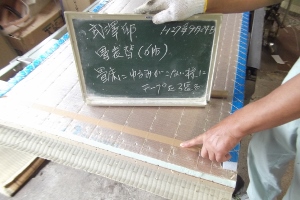 武澤邸 H27年9月19日
畳表替(6帖)
畳床にゆるみがこない様に
テープを2重に